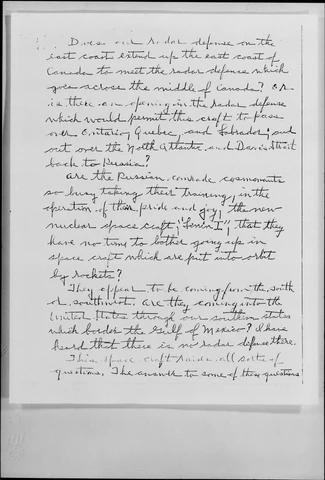 Does our radar defense on the
east coast extend up the east coast of
Canada to meet the radar defense which
goes across the middle of Canada? Or
is there an opening in the radar defense
which would permit this craft to pass
over Ontario, Quebec, and Labrador, and
out over the North Atlantic and Davis Strait
back to Russia?
Are the Russian comrade cosmonauts
so busy taking their training, in the
operation of their pride and joy, the new
nuclear space craft, "Lenin I", that they
have no time to bother going up in
space craft which are put into orbit
by rockets?
They appear to be coming from the south
or southwest. Are they coming into the
United States through our southern states
which border the Gulf of Mexico? I have
heard that there is no radar defense there.
This space craft raises all sorts of
questions. The answer to some of these questions